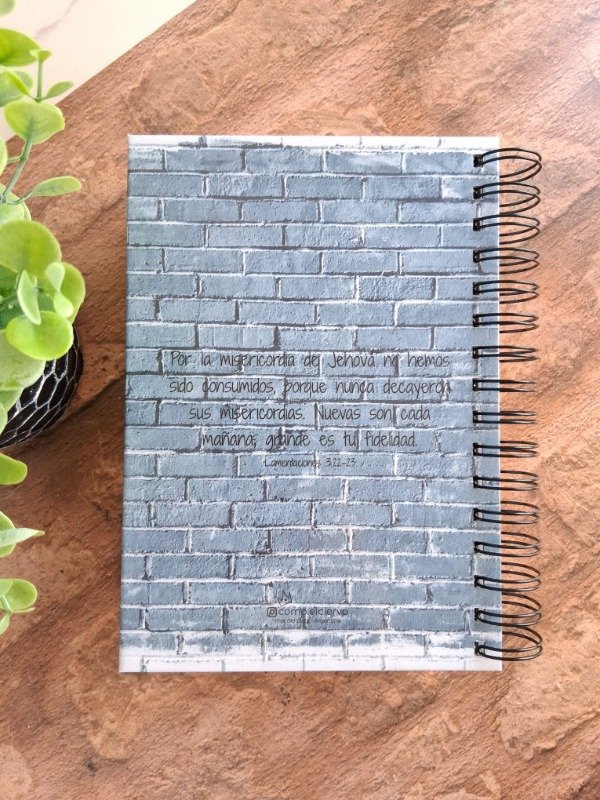 Por la misericordia de Jehová no hemos
sido consumidos, porque nunca decayeron
sus misericordias. Nuevas son cada
mañana; grande es tu fidelidad.
Lamentaciones 3:22-23
como.elciervo
Mar del Plata - Argentina